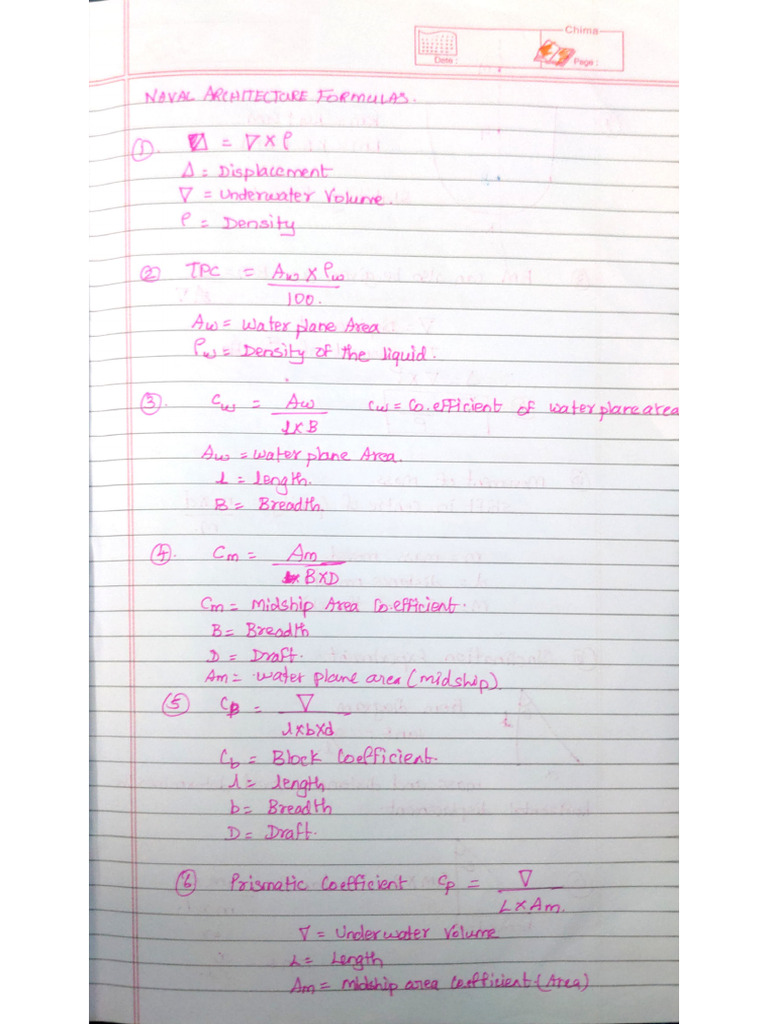 Chima
Date :
Page :
NAVAL ARCHITECTURE FORMULAS.
① Δ = ∇ × ρ
Δ = Displacement
∇ = Underwater Volume.
ρ = Density
② TPC = Aw × ρw / 100.
Aw = Water plane Area
ρw = Density of the liquid.
③. Cw = Aw / l×B Cw = Co.efficient of water plane area
Aw = water plane Area.
l = length.
B = Breadth.
④. Cm = Am / B×D
Cm = Midship Area Co.efficient.
B = Breadth
D = Draft.
Am = water plane area (midship).
⑤ CB = ∇ / l×b×d
Cb = Block Coefficient.
l = length
b = Breadth
D = Draft.
⑥ Prismatic Coefficient Cp = ∇ / L×Am.
∇ = Underwater Volume
L = Length
Am = midship area coefficient (Area)